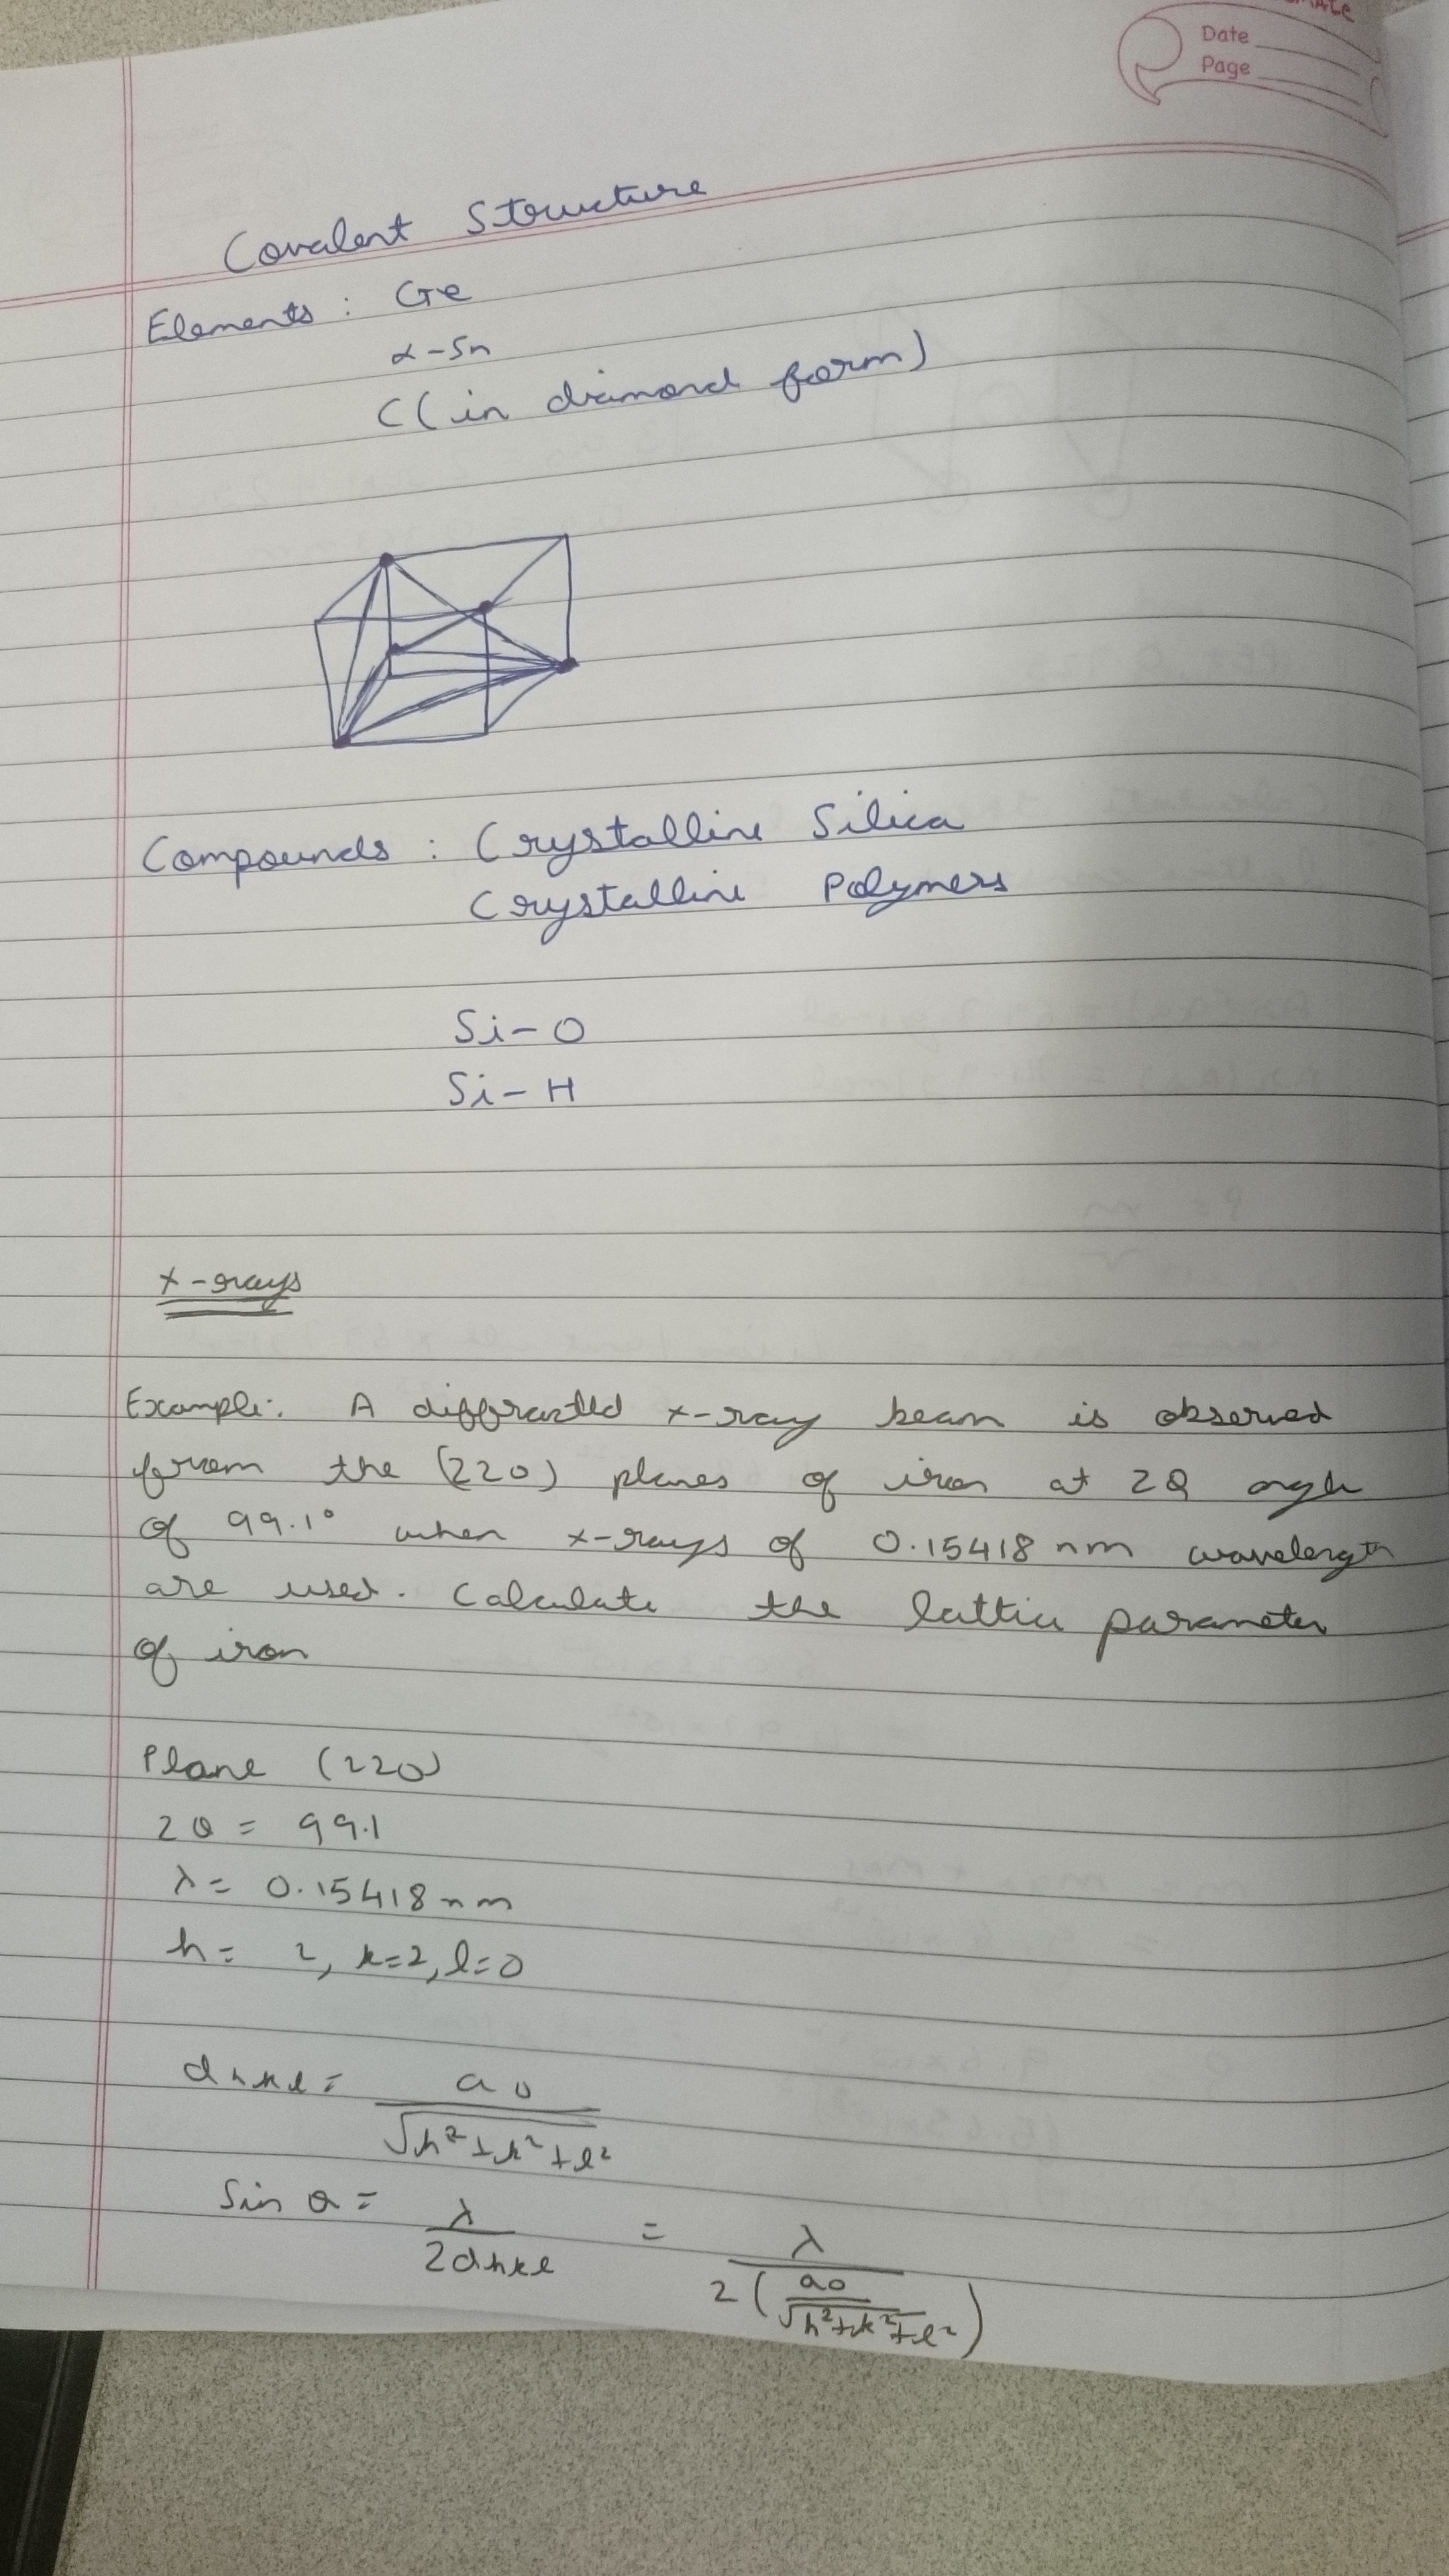 Date
Page
Covalent Structure
Elements : Ge
α-Sn
C (in diamond form)
Compounds : Crystalline Silica
Crystalline Polymers
Si-O
Si-H
x-rays
Example: A diffracted x-ray beam is observed
from the (220) planes of iron at 2θ angle
of 99.1° when x-rays of 0.15418 nm wavelength
are used. Calculate the lattice parameter
of iron
Plane (220)
2θ = 99.1
λ = 0.15418 nm
h = 2, k=2, l=0
dhkl = a0 / √h²+k²+l²
Sin θ = λ / 2dhkl = λ / 2(a0 / √h²+k²+l²)